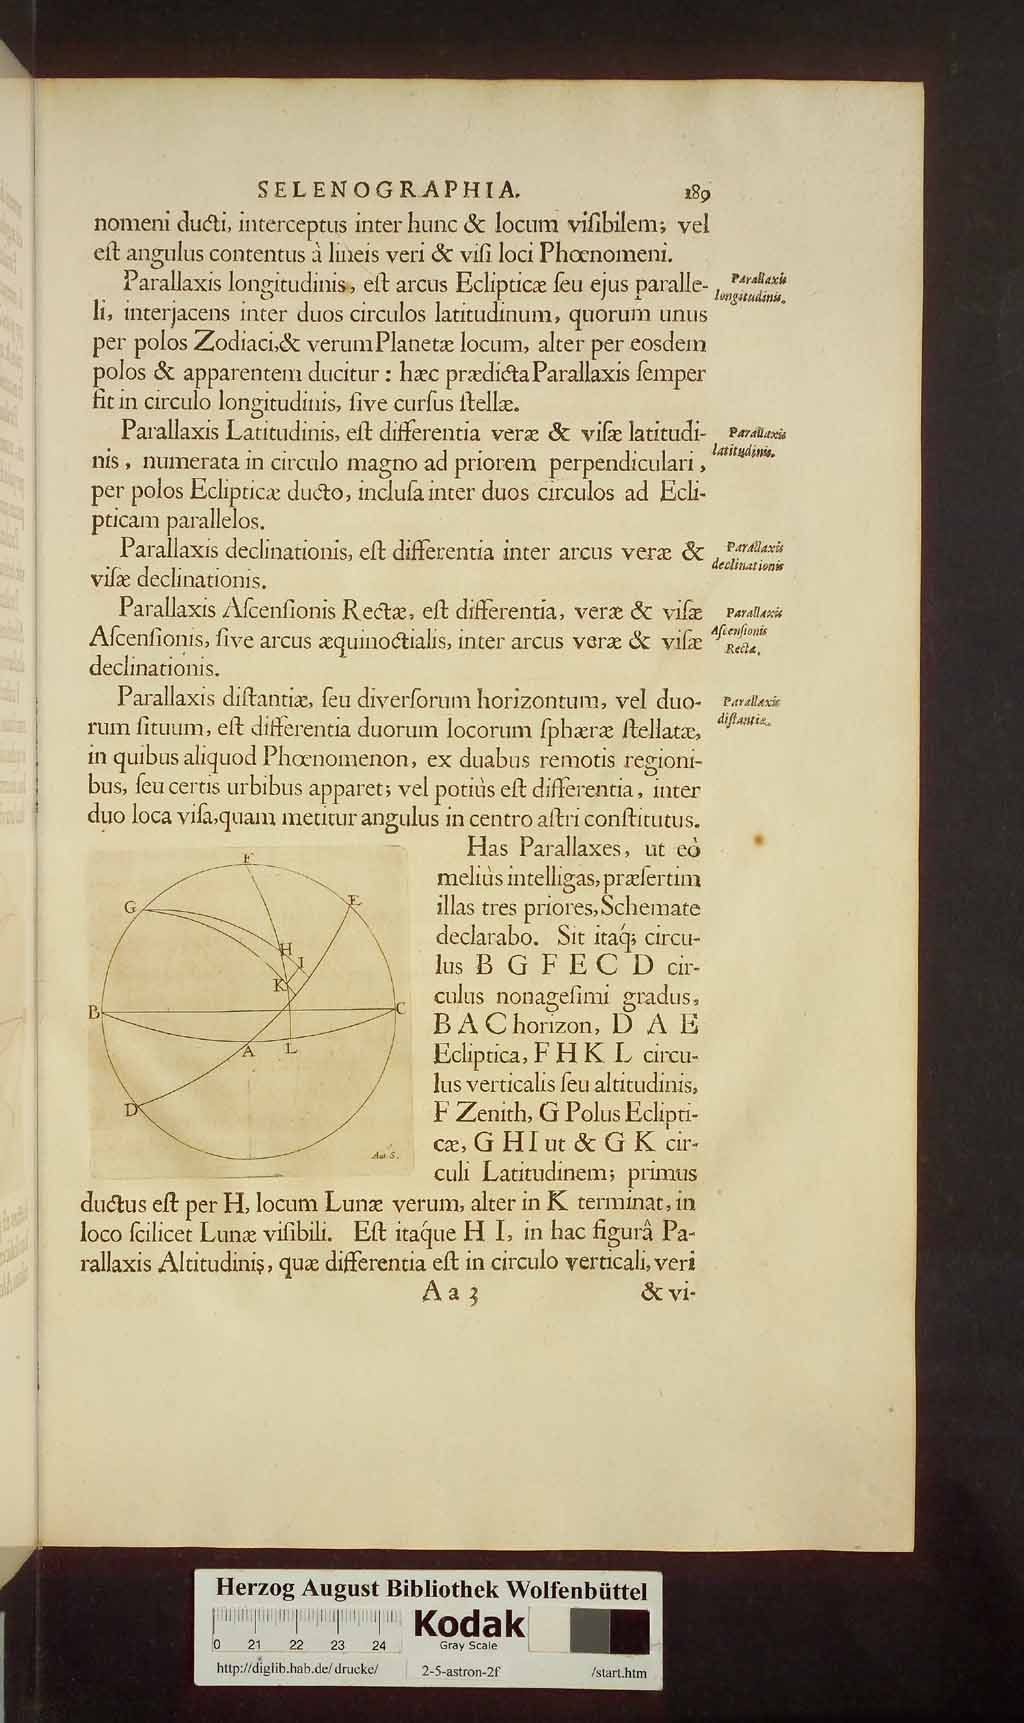 SELENOGRAPHIA. 189
nomeni ducti, interceptus inter hunc & locum viſibilem; vel
eſt angulus contentus à lineis veri & viſi loci Phœnomeni.
Parallaxis longitudinis, eſt arcus Eclipticæ ſeu ejus paralle-
Parallaxis
longitudinis.
li, interjacens inter duos circulos latitudinum, quorum unus
per polos Zodiaci, & verum Planetæ locum, alter per eosdem
polos & apparentem ducitur : hæc prædicta Parallaxis ſemper
fit in circulo longitudinis, ſive curſus ſtellæ.
Parallaxis Latitudinis, eſt differentia veræ & viſæ latitudi-
Parallaxis
latitudinis.
nis, numerata in circulo magno ad priorem perpendiculari,
per polos Eclipticæ ducto, incluſa inter duos circulos ad Ecli-
pticam parallelos.
Parallaxis declinationis, eſt differentia inter arcus veræ &
Parallaxis
declinationis
viſæ declinationis.
Parallaxis Aſcenſionis Rectæ, eſt differentia, veræ & viſæ
Parallaxis
Aſcenſionis
Rectæ.
Aſcenſionis, ſive arcus æquinoctialis, inter arcus veræ & viſæ
declinationis.
Parallaxis diſtantiæ, ſeu diverſorum horizontum, vel duo-
Parallaxis
diſtantiæ.
rum ſituum, eſt differentia duorum locorum ſphæræ ſtellatæ,
in quibus aliquod Phœnomenon, ex duabus remotis regioni-
bus, ſeu certis urbibus apparet; vel potiùs eſt differentia, inter
duo loca viſa, quam metitur angulus in centro aſtri conſtitutus.
F
G
E
H
I
K
B
C
A
L
D
Aut. S.
Has Parallaxes, ut eò
meliùs intelligas, præſertim
illas tres priores, Schemate
declarabo. Sit itaq́; circu-
lus B G F E C D cir-
culus nonageſimi gradus,
B A C horizon, D A E
Ecliptica, F H K L circu-
lus verticalis ſeu altitudinis,
F Zenith, G Polus Eclipti-
cæ, G H I ut & G K cir-
culi Latitudinem; primus
ductus eſt per H, locum Lunæ verum, alter in K terminat, in
loco ſcilicet Lunæ viſibili. Eſt itaq́ue H I, in hac figurâ Pa-
rallaxis Altitudinis, quæ differentia eſt in circulo verticali, veri
A a 3 & vi-
Herzog August Bibliothek Wolfenbüttel
0 21 22 23 24
Kodak
Gray Scale
http://diglib.hab.de/drucke/ 2-5-astron-2f /start.htm